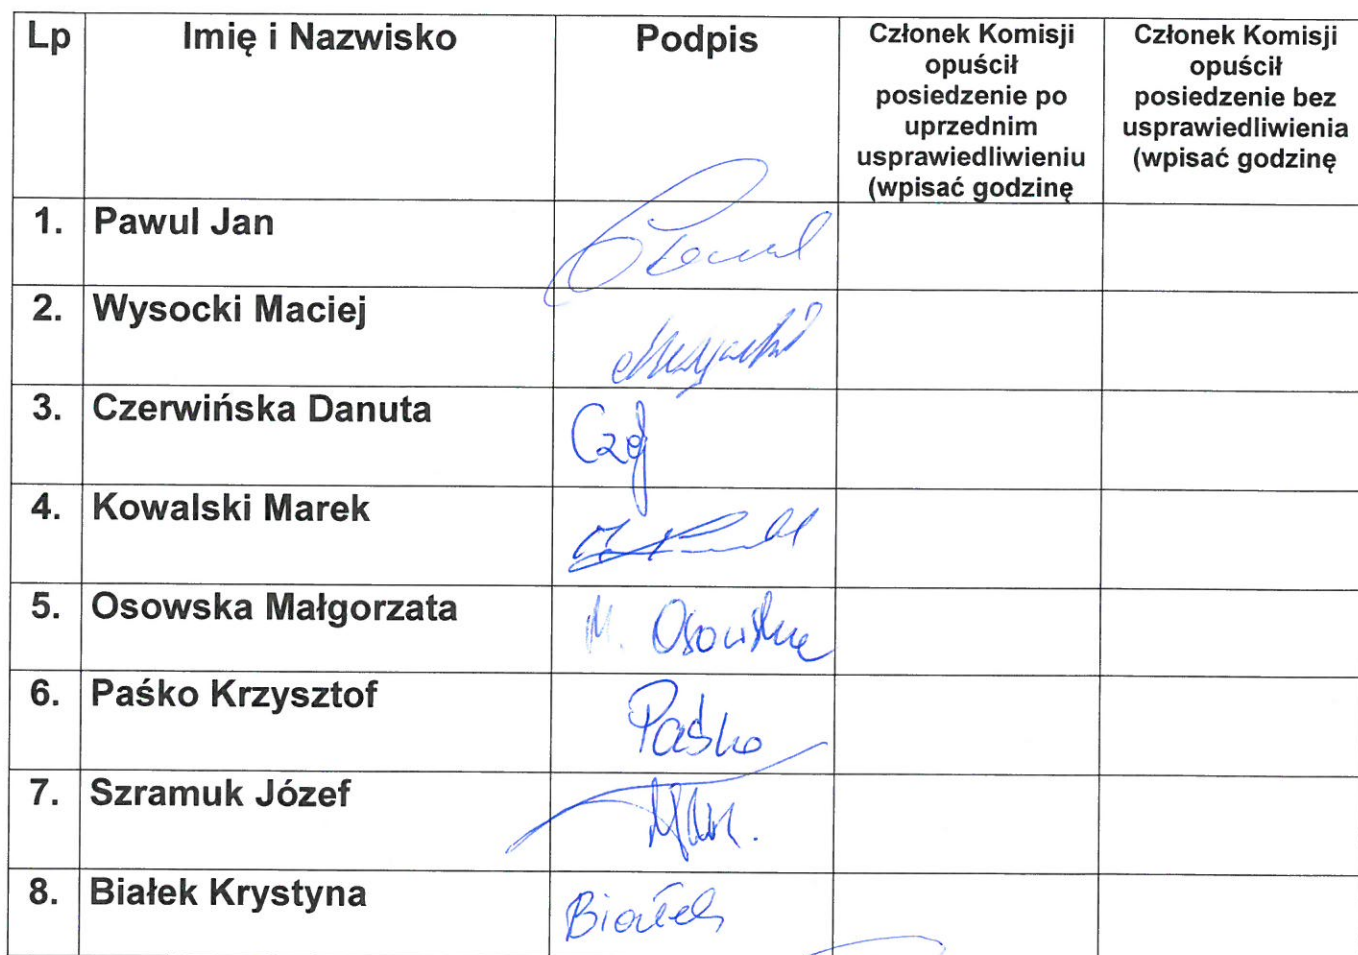 Lp Imię i Nazwisko Podpis Członek Komisji opuścił posiedzenie po uprzednim usprawiedliwieniu (wpisać godzinę Członek Komisji opuścił posiedzenie bez usprawiedliwienia (wpisać godzinę
1. Pawul Jan
2. Wysocki Maciej
3. Czerwińska Danuta
4. Kowalski Marek
5. Osowska Małgorzata M. Osowska
6. Paśko Krzysztof Paśko
7. Szramuk Józef
8. Białek Krystyna Białek